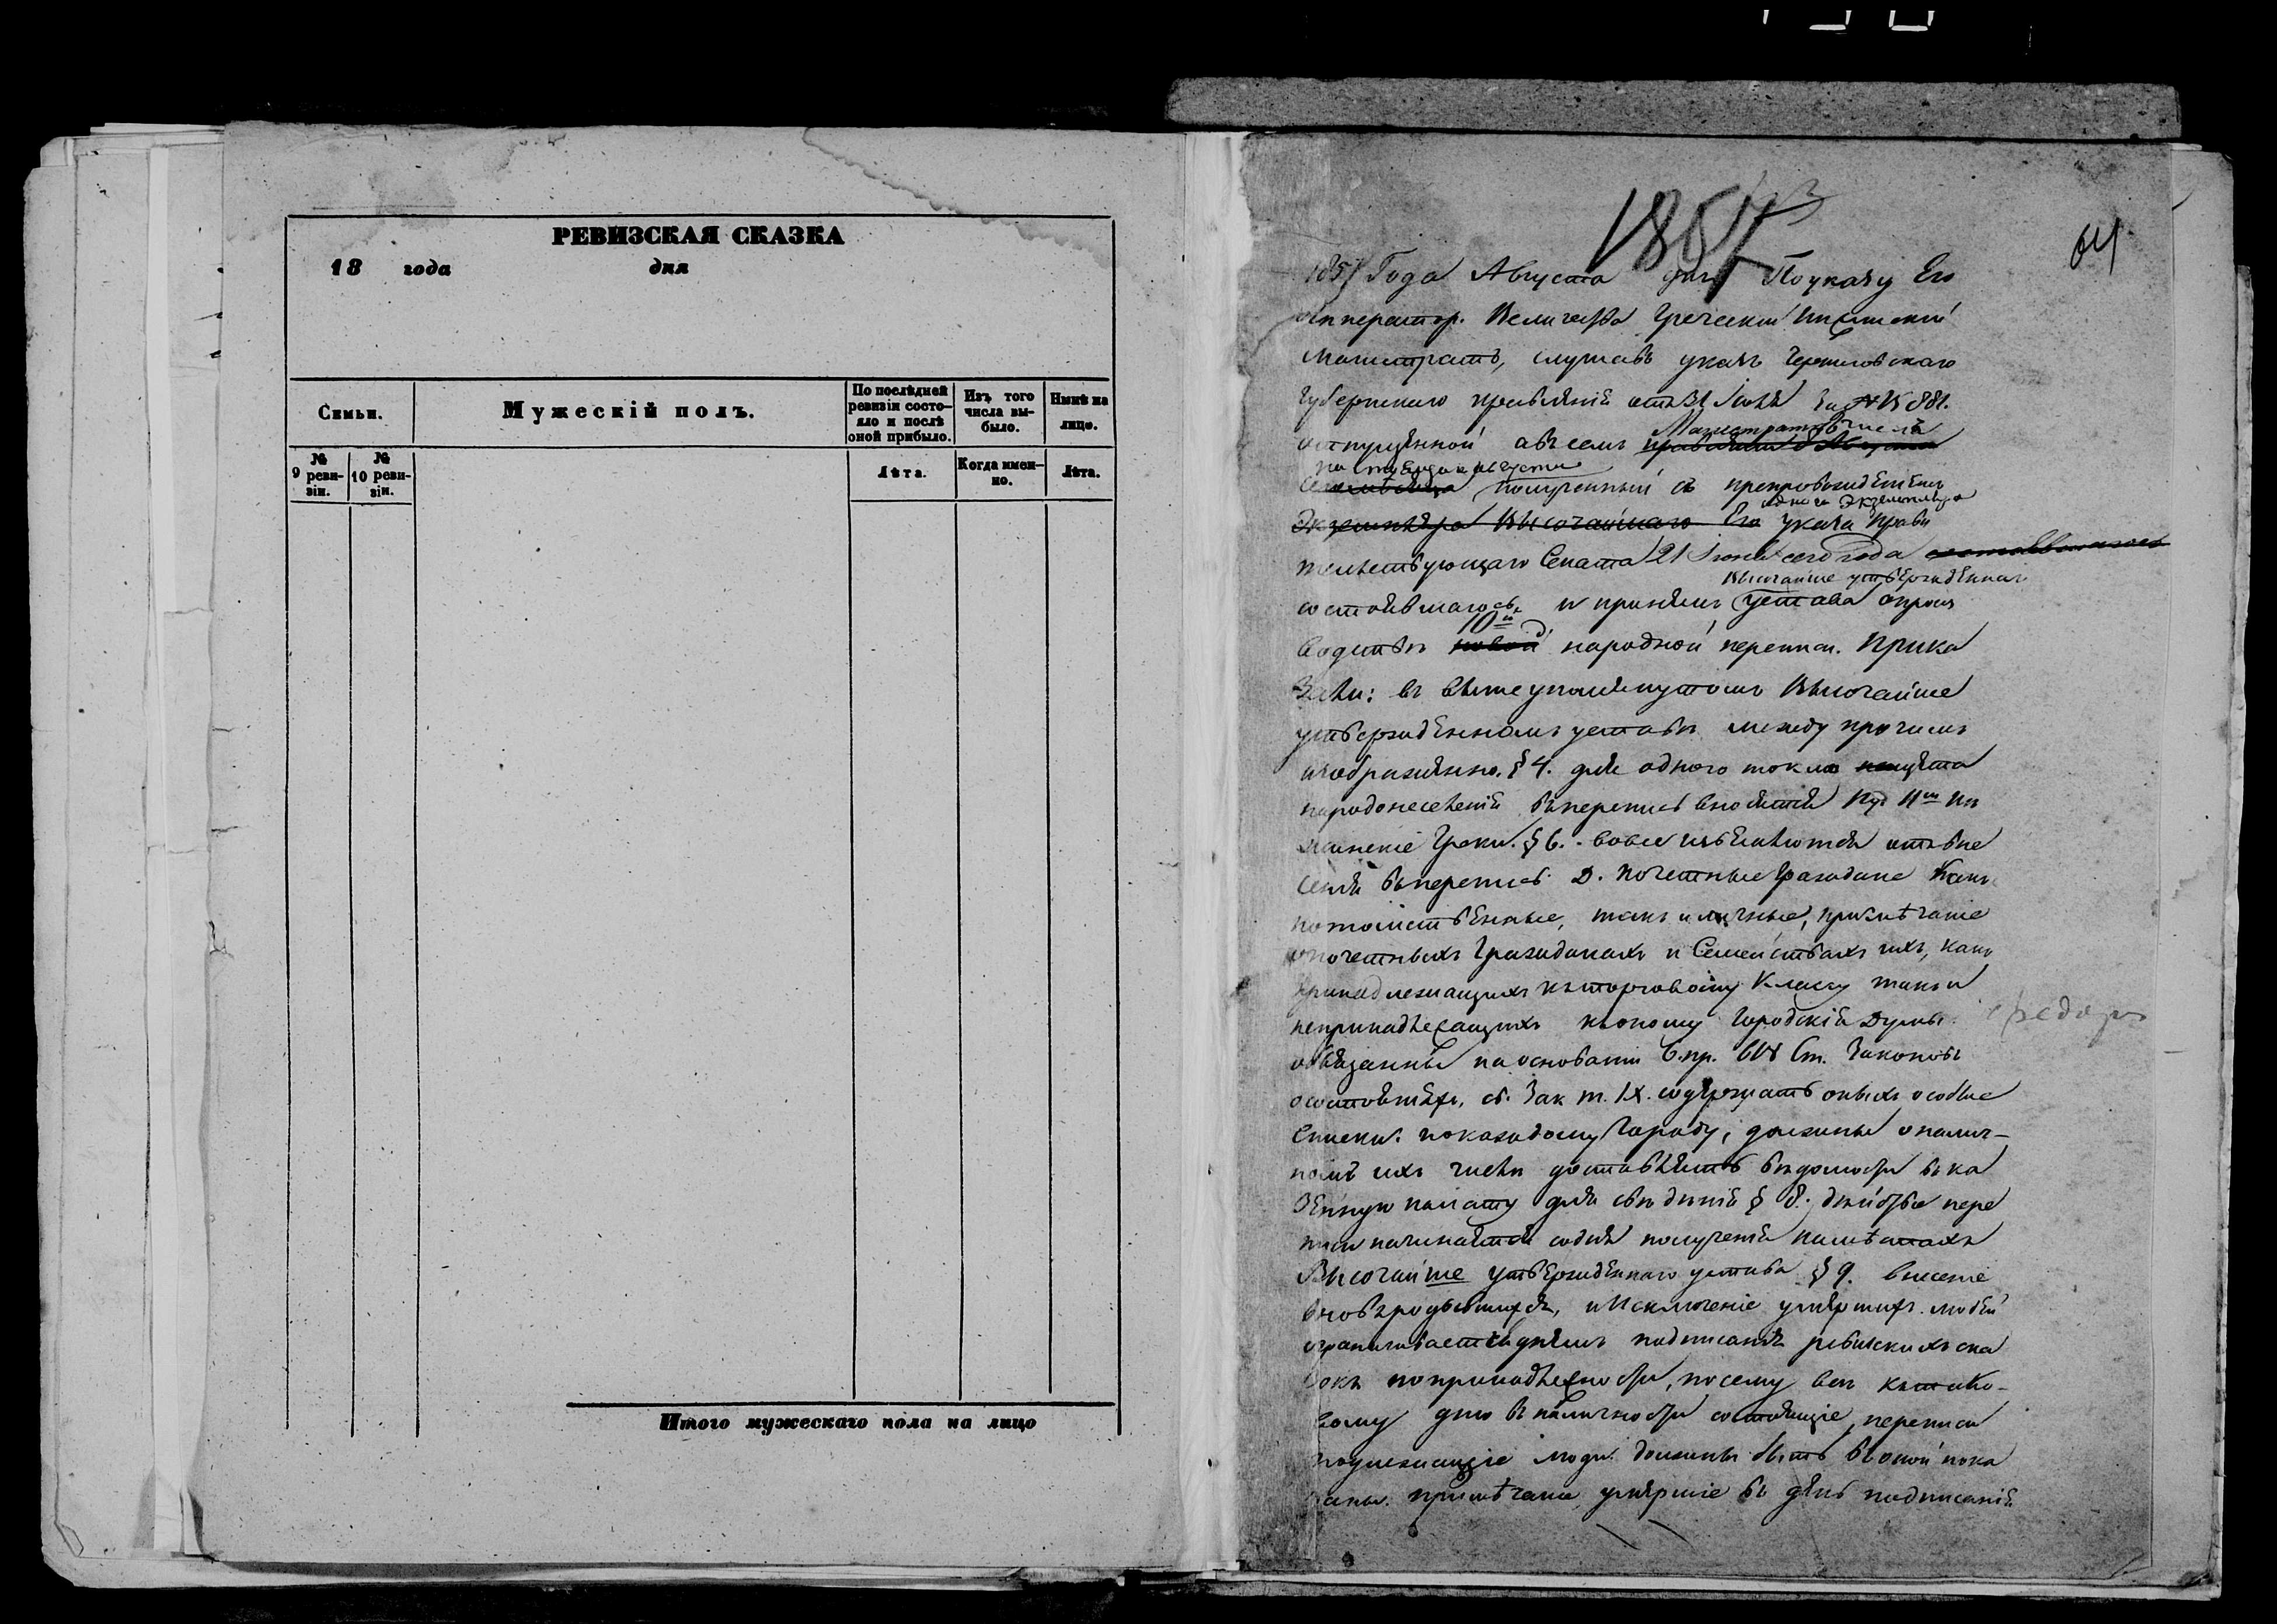 РЕВИЗСКАЯ СКАЗКА
18 года дня
Семьи.
Мужескій полъ.
По послѣдней ревизіи состояло и послѣ оной прибыло.
Изъ того числа выбыло.
Нынѣ на лицо.
№ 9 ревизіи.
№ 10 ревизіи.
Лѣта.
Когда именно.
Лѣта.
Итого мужескаго пола на лицо
64
1857 Года Августа дня По указу Его
Император. Величества Греческій Нѣжинскій
Магистратъ, слушавъ указъ Черниговскаго
Губернскаго правленія отъ 31 Іюля за № 15881.
Магистратѣ
полученный съ препровожденіемъ
одного Экземпляра
Экземпляра Высочайшаго Его указа Прави
тельствующаго Сената 21 Іюня сего года
Высочайше утвержденнаго
состоявшагося, и при немъ Устава о произ
10й
водствѣ новой народной переписи. Прика
зали: въ вышеупомянутомъ Высочайше
утвержденномъ уставѣ между прочимъ
изображено. § 4. для одного токмо
народонаселенія въ перепись вносятся
Греки. § 6. вовсе отъ вне
сенія въ перепись Д. Почетные Граждане какъ
потомственные, такъ и личные, примѣчаніе
о почетныхъ Гражданахъ и Семействахъ ихъ, какъ
принадлежащихъ къ торговому Классу такъ и
непринадлежащихъ къ оному Городскія Думы
обязанны на основаніи Ст. Законовъ
о состояніяхъ, св. Зак. т. IX. содержать онымъ особые
Списки. по каждому Городу, должны о налич-
номъ ихъ числѣ доставлять вѣдомости въ Ка
зенную палату для свѣдѣнія § 8. дѣйствіе пере
писи начинается со дня полученія на мѣстахъ
Высочайше утвержденнаго устава § 9. внесеніе
вновь родившихся, и исключеніе умершихъ людей
ограничивается днемъ подписанія ревизскихъ ска
зокъ по принадлежности, посему всѣ къ тако-
вому дню въ наличности состоящіе, переписи
подлежащіе люди должны быть въ оной пока
заны. примѣчаніе, умершіе въ день подписанія